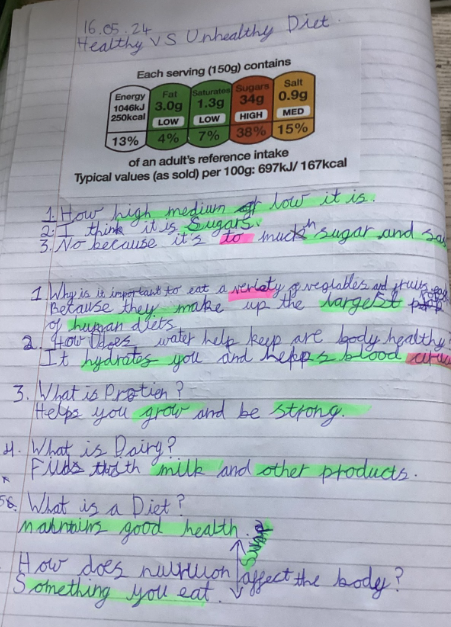 16.05.24
Healthy VS Unhealthy Diet.
Each serving (150g) contains
Energy 1046kJ 250kcal 13%
Fat 3.0g LOW 4%
Saturates 1.3g LOW 7%
Sugars 34g HIGH 38%
Salt 0.9g MED 15%
of an adult's reference intake
Typical values (as sold) per 100g: 697kJ/ 167kcal
1. How high medium low it is.
2. I think it is sugars.
3. No because it's to much sugar and
1 Why is it important to eat a veriaty vegtables
Because they make up the largest
of human diets
2. How does water help keep are body healthy?
It hydrates you and blood
3. What is Protien?
Helps you grow and be strong.
4. What is Dairy?
with milk and other products.
What is a Diet?
good health.
How does affect the body?
Something you eat.